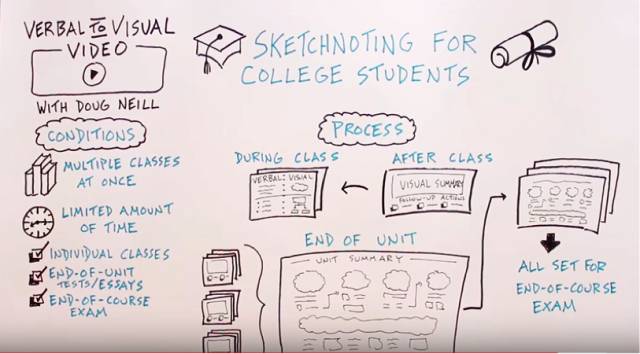 VERBAL TO VISUAL
VIDEO
WITH DOUG NEILL
SKETCHNOTING FOR
COLLEGE STUDENTS
CONDITIONS
MULTIPLE CLASSES
AT ONCE
LIMITED AMOUNT
OF TIME
INDIVIDUAL CLASSES
END-OF-UNIT
TESTS/ESSAYS
END-OF-COURSE
EXAM
PROCESS
DURING CLASS
VERBAL: VISUAL
AFTER CLASS
VISUAL SUMMARY
FOLLOW-UP ACTIONS
END OF UNIT
UNIT SUMMARY
ALL SET FOR
END-OF-COURSE
EXAM